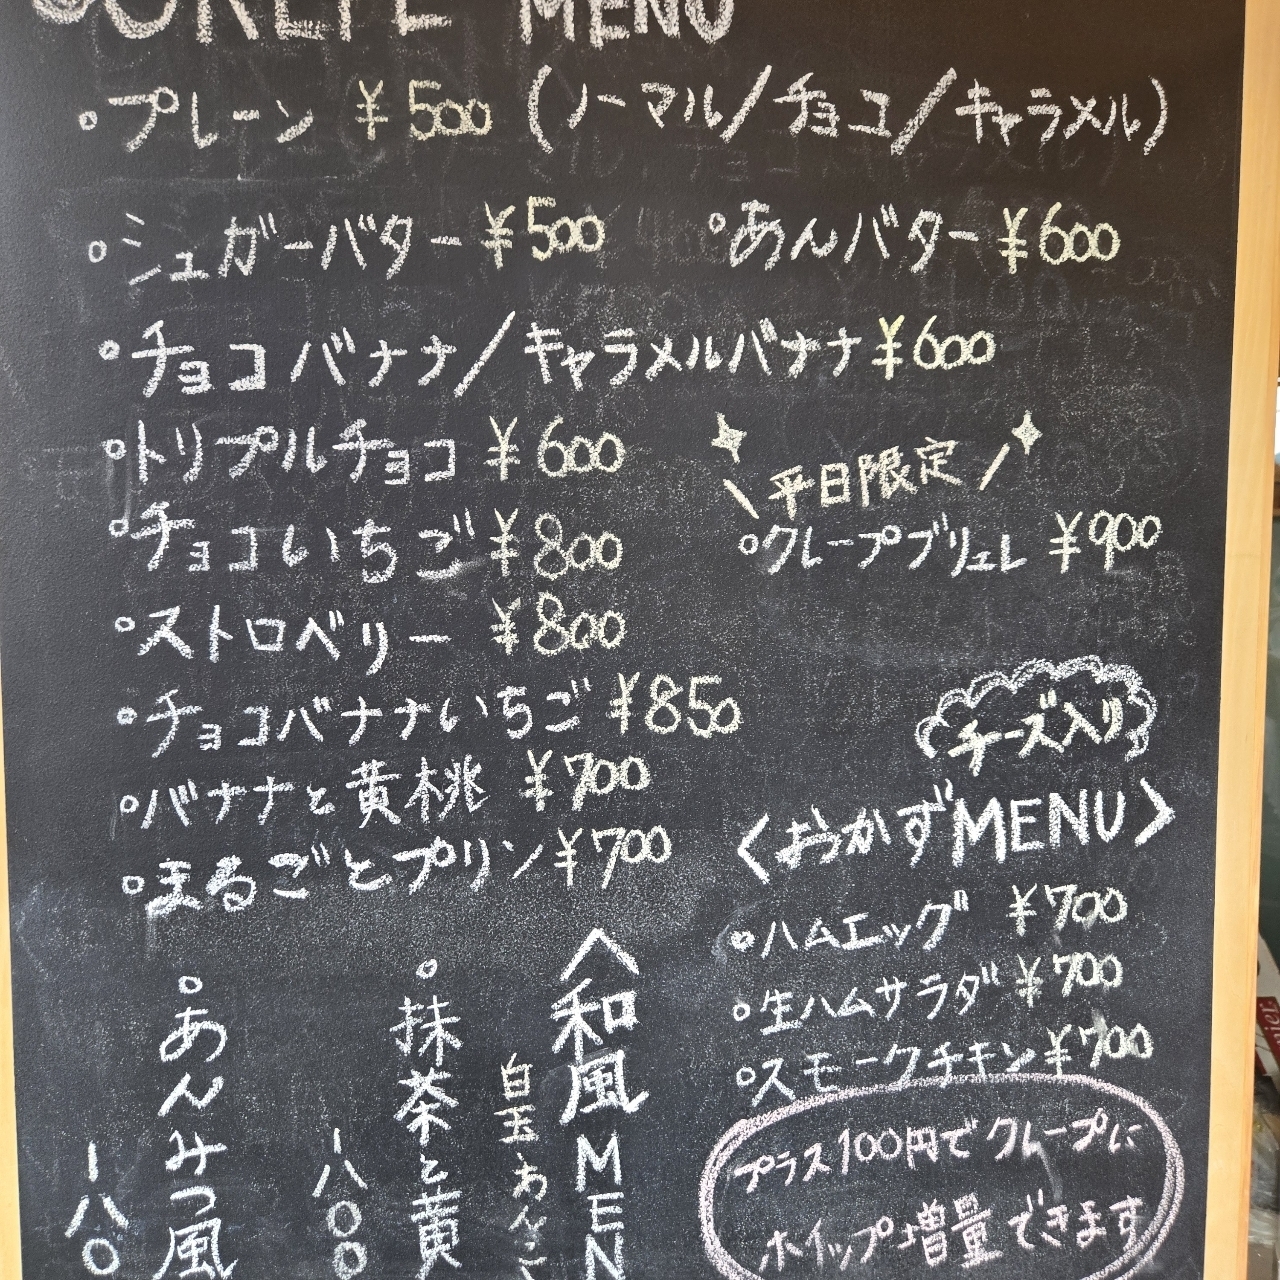 CREPE MENU
○プレーン ¥500 (ノーマル/チョコ/キャラメル)
○シュガーバター ¥500
○あんバター ¥600
○チョコバナナ/キャラメルバナナ ¥600
○トリプルチョコ ¥600
○チョコいちご ¥800
○ストロベリー ¥800
○チョコバナナいちご ¥850
○バナナと黄桃 ¥700
○まるごとプリン ¥700
\平日限定/
○クレープブリュレ ¥900
チーズ入り
〈おかずMENU〉
○ハムエッグ ¥700
○生ハムサラダ ¥700
○スモークチキン ¥700
プラス100円でクレープに
ホイップ増量できます
〈和風MEN
白玉あんこ
○抹茶と黄
一八〇〇
○あんみつ風
一八〇